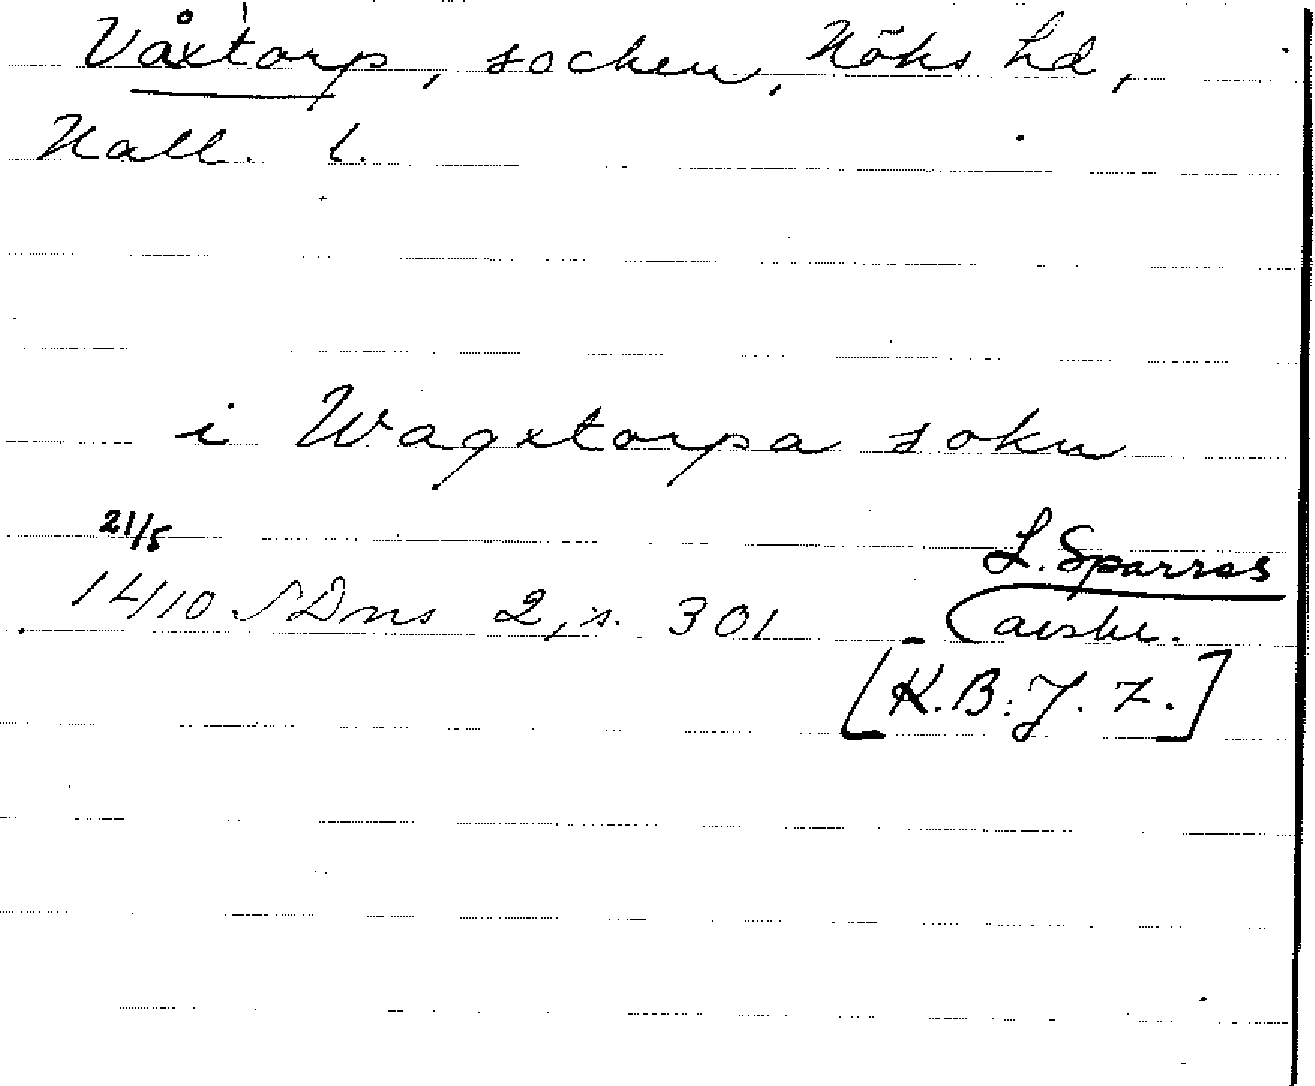 Våxtorp, socken, Höks hd,
Hall. l.
i Wagxtorpa sokn
21/5
1410 SDns 2, s. 301
L. Sparres
avskr.
[K.B: J. 7.]